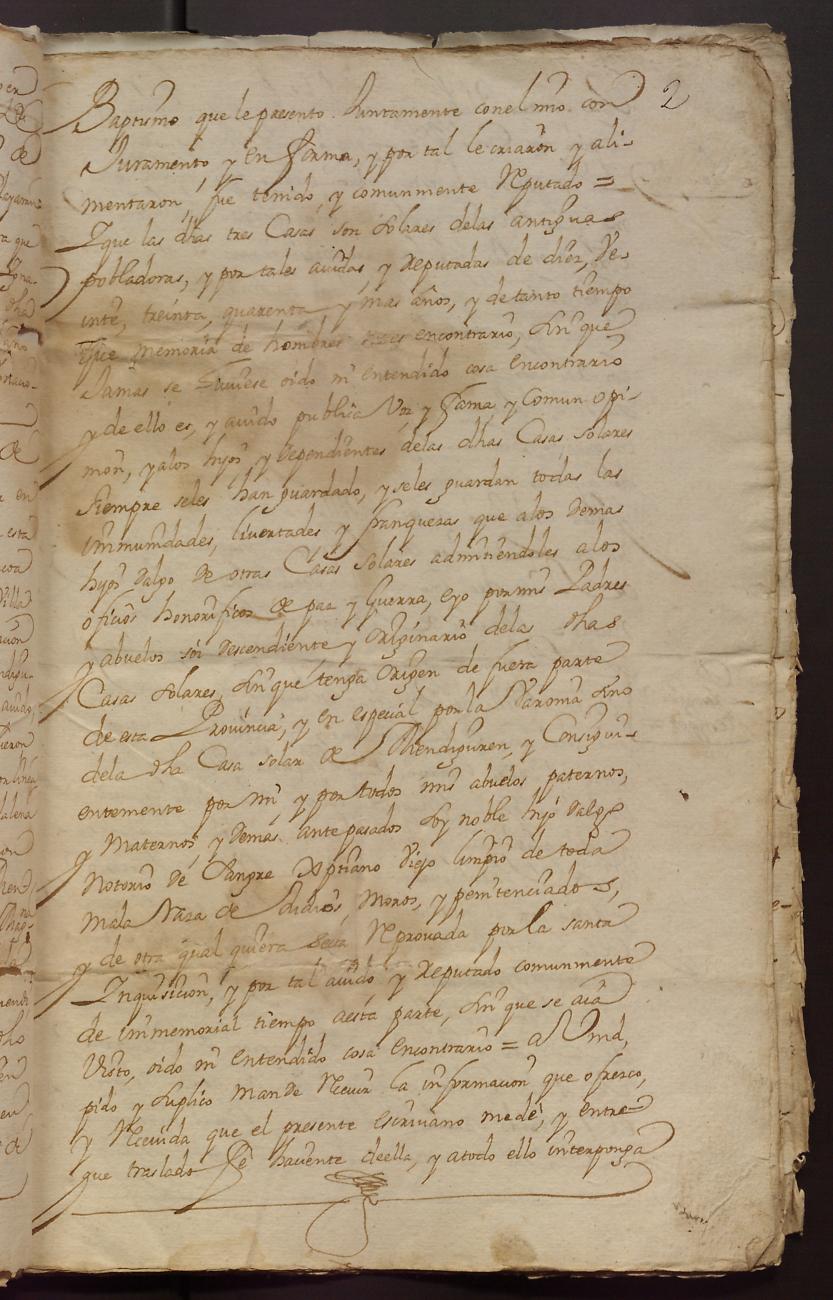 2
Baptismo que le presento Juntamente con el mio con
Juramento y en forma, y por tal le criaron y ali-
mentaron, fue tenido, y comunmente Reputado =
Y que las dhas tres Casas son solares delas antiguas
pobladoras, y por tales avidas y Reputadas de diez, ve-
inte, treinta, quarenta y mas años, y de tanto tiempo
que memoria de hombres encontrario, sin que
Jamas se huviese oido ni entendido cosa encontrario
y de ello es, y avido publica Voz y fama y Comun opi-
nion, y alos hijos y Dependientes delas dhas Casas solares
siempre seles han guardado, y seles guardan todas las
immunidades, livertades y franquezas que alos Demas
hijos dalgo de otras Casas solares admitiendoles alos
oficios honorificos de paz y Guerra, e yo por mis Padres
y abuelos soi Descendiente y Originario delas dhas
Casas solares, sin que tenga Origen de fuera parte
de esta Provincia, y en especial por la Varonia sino
dela dha Casa solar de Mendiguren, y Consigui-
entemente por mi y por todos mis abuelos paternos,
y Maternos y Demas ante pasados soy noble hijo Dalgo
Notorio de Sangre Xptiano Viejo limpio de toda
Mala Raza de Judios, Moros, y penitenciados,
y de otra qual quiera Secta Reprovada por la santa
Inquisicion, y por tal avido y Reputado comunmente
de immemorial tiempo aesta parte, sin que se aia
Visto, oido ni entendido cosa encontrario = a Vmd,
pido y suplico Mande Recivir la informacion que ofresco,
y Recivida que el presente escrivano me de, y entre-
gue traslado fe haciente de ella, y atodo ello interponga